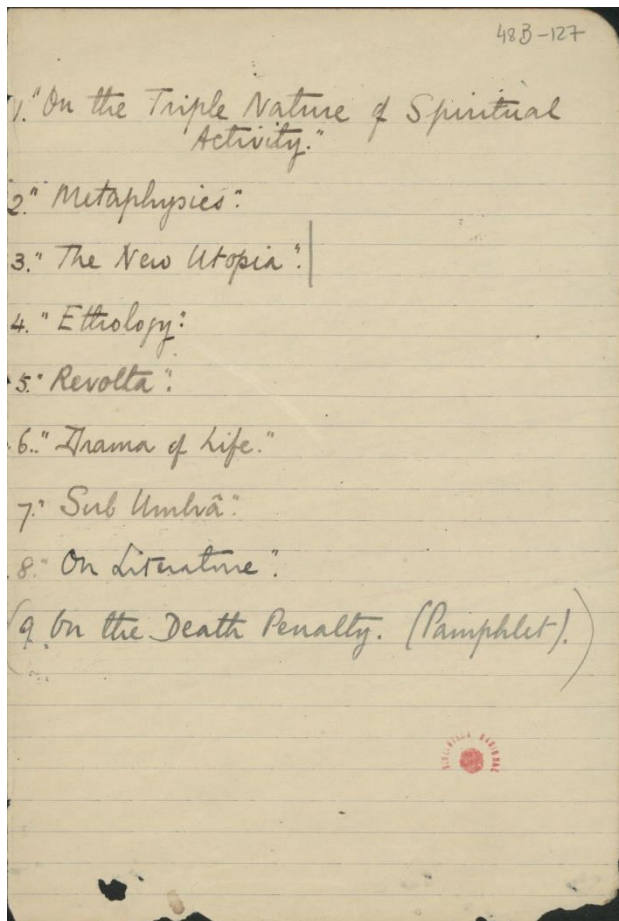 48B-127
1. "On the Triple Nature of Spiritual
Activity."
2." Metaphysics".
3." The New Utopia".
4. "Ethology".
5." Revolta".
6." Drama of Life."
7." Sub Umbrâ".
8." On Literature".
(9. On the Death Penalty. (Pamphlet).)
BIBLIOTECA NACIONAL